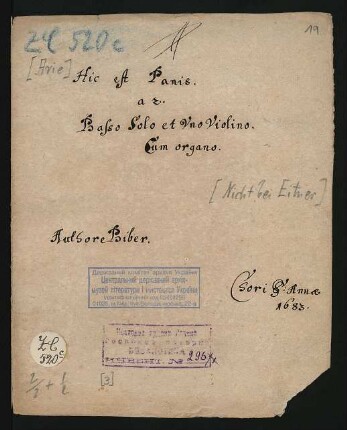 19
ZC 520c
[Arie]
Hic est Panis.
a 2.
Basso Solo et Vno Violino.
Cum organo.
[Nicht bei Eitner]
Authore Biber.
Державний комітет архівів України
Центральний державний архів-
музей літератури і мистецтва України
Chori S. Annæ
1683.
ZC
520c
[3]